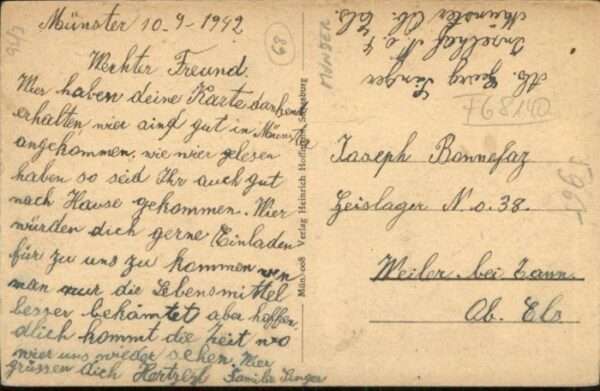 Münster 10-9-1942
Werhter Freund.
Wier haben deine Karte dankend
erhalten wier aind gut in Münster
angekommen, wie wier gelesen
haben so seid Ihr auch gut
nach Hause gekommen. Wier
würden dich gerne Einladen
für zu uns zu kommen wen
man nur die Lebensmittel
besser bekämtet aber hoffen
dlich kommt die Zeit wo
wier uns wieder sehen. Wier
grüssen dich Hertzlyl Familie Singer
Mün. 008 Verlag Heinrich Hoffm Strassburg
68
MÜNDER
Ab. Georg Singer
Inselhof No 7
Münster Ob. Els.
F68140
Joseph Bonnefaz
Geislager No. 38.
Weiler bei Tann.
Ob. Els